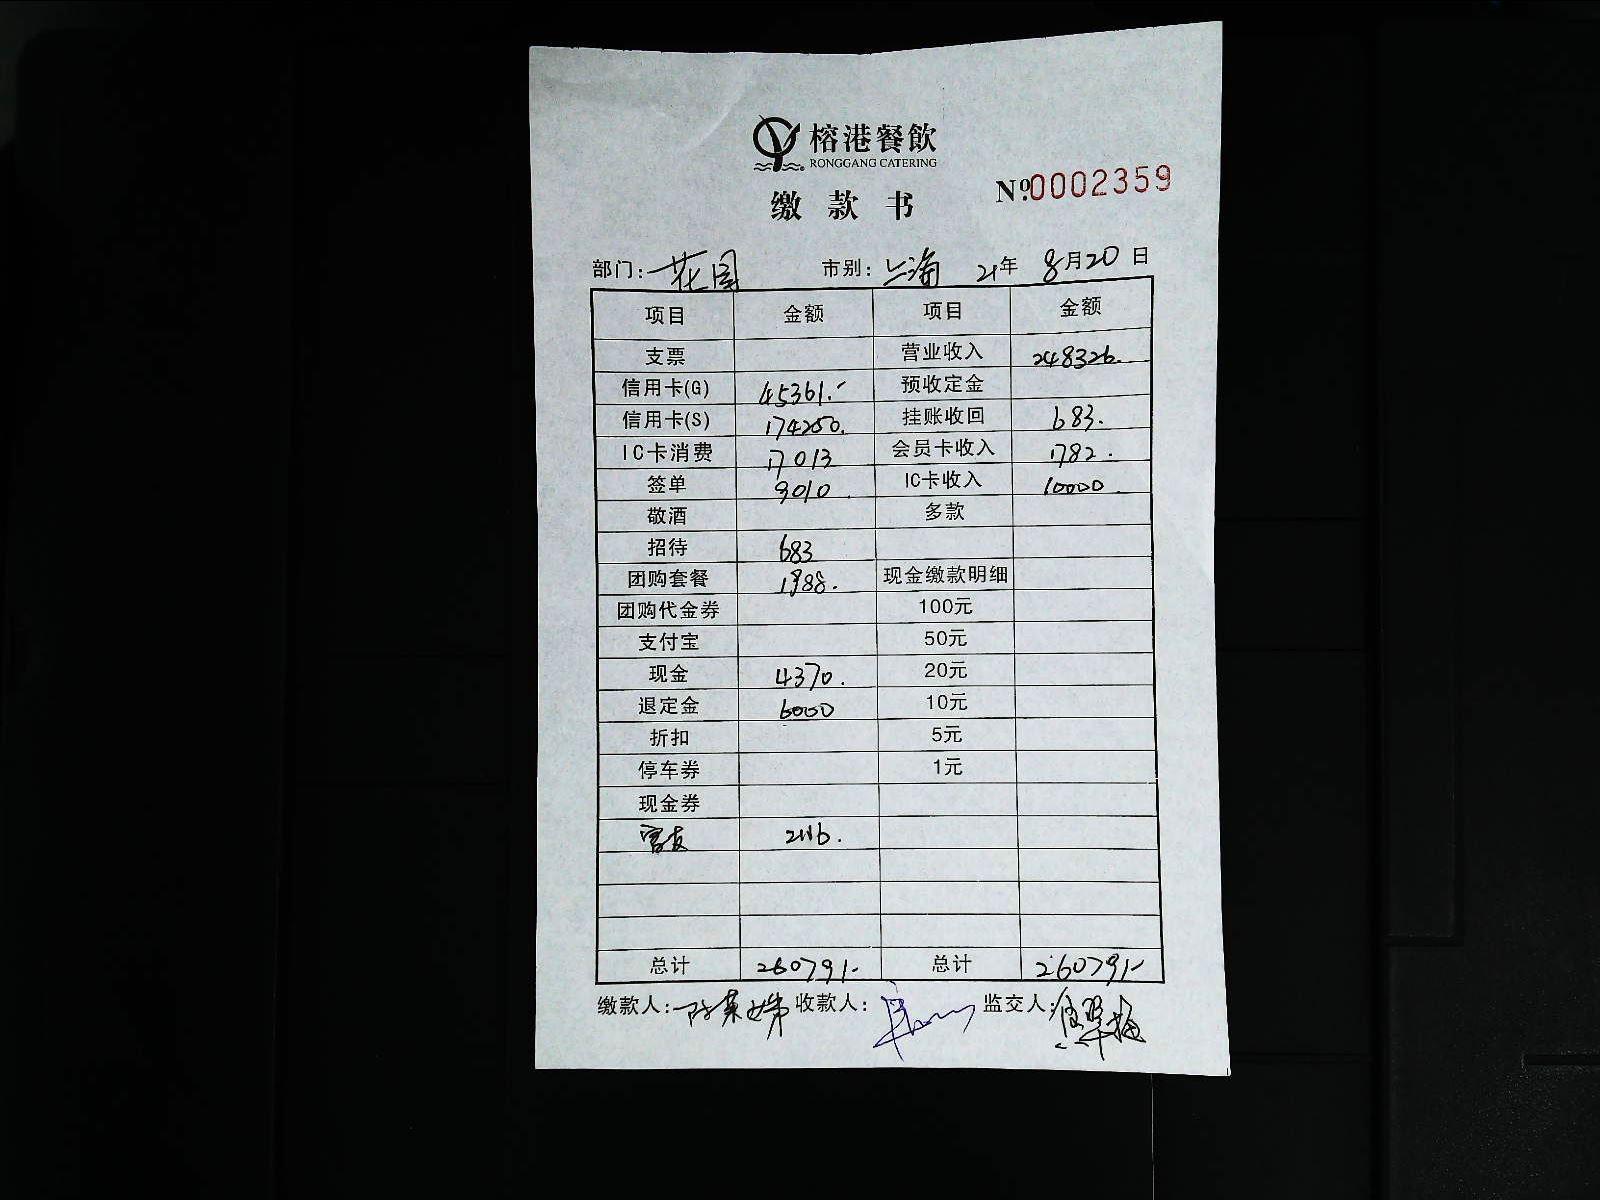 榕港餐飲
RONGGANG CATERING
缴款书
№0002359
部门: 花园 市别: 上海 21年 8月20日
项目 金额 项目 金额
支票 营业收入 248326.
信用卡(G) 45361.- 预收定金
信用卡(S) 174250. 挂账收回 683.
IC卡消费 17013 会员卡收入 1782.
签单 9010. IC卡收入 10000.
敬酒 多款
招待 683
团购套餐 1988. 现金缴款明细
团购代金券 100元
支付宝 50元
现金 4370. 20元
退定金 6000 10元
折扣 5元
停车券 1元
现金券
2116.
总计 260791- 总计 260791-
缴款人: 收款人: 监交人: